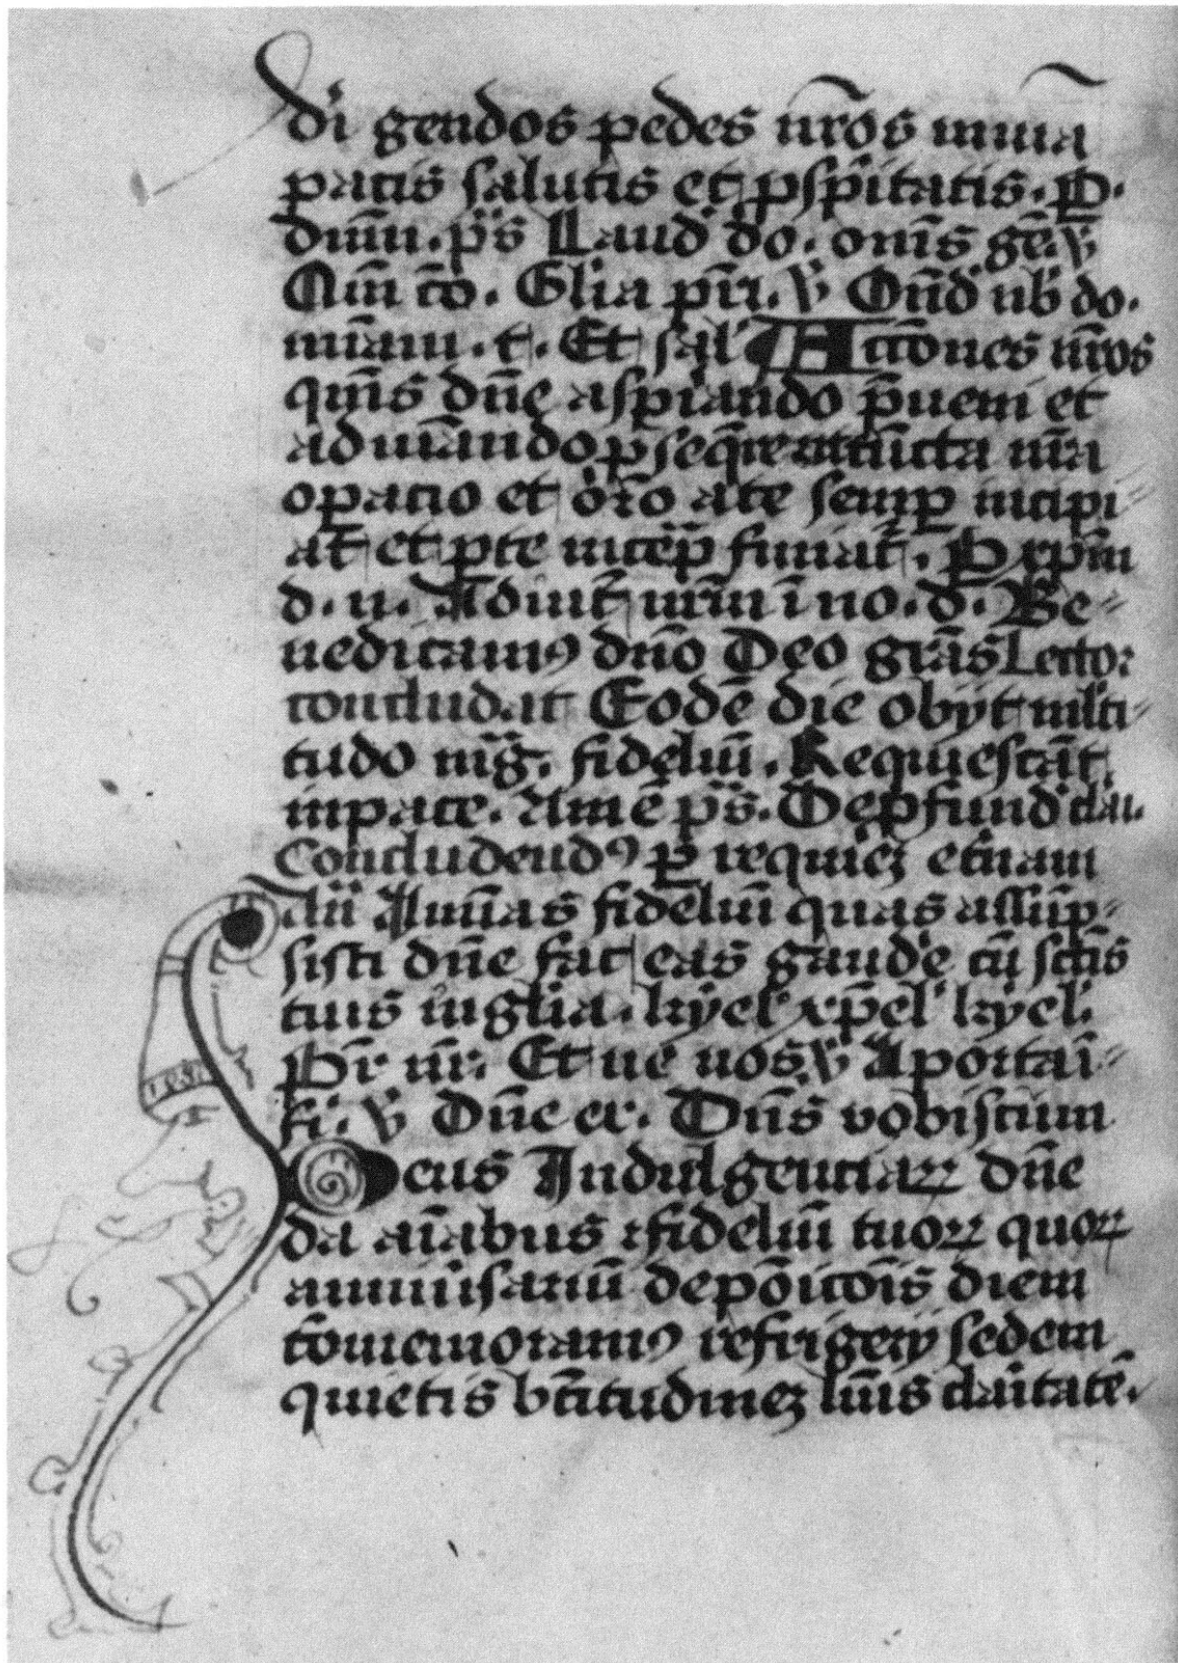 di gendos pedes nr̄os in uia
pacis salutis et ꝓspitatis. P.
dnm̄. ps̄ Laud' do. om̄s gē. ℣
Qm̄ cō. Glīa pr̄i. ℣ On̄d' nb' do.
mīam. t. Et sal' Actiōnes nr̄os
qms̄ dn̄e aspirando p̄ueni et
adiuuando ꝓseq̄re ut cūcta nr̄a
oꝑatio et or̄o a te semꝑ incipi
at et ꝑ te incep̄ finiat̄. P xp̄m
d. n. Adiut̄ nrm̄ ī no. d. Be
nedicamꝰ dn̄o Deo gr̄as Lector
concludat Eodē die obijt mlti
tudo mḡ. fideliū. Requiescāt
in pace. Amē ps̄. De ꝓfund' clai.
Concludendꝰ ꝑ requiēꝫ et̄nam
Animas fideliū quas assūp
sisti dn̄e fac eas gaud'e cū sctīs
tuis in glīa. kyel' xp̄el' kyel'.
Pr̄ nr̄. Et ne nos ℣ A porta ī
fi. ℣ Dn̄e ex. Dn̄s vobiscum
Deus Indulgentiaꝝ dn̄e
da aīabus fideliū tuoꝝ quoꝝ
anniu'sariū depōitōis diem
cōmemoramꝰ refrigerij sedem
quietis btītudineꝫ lum̄is claritatē.